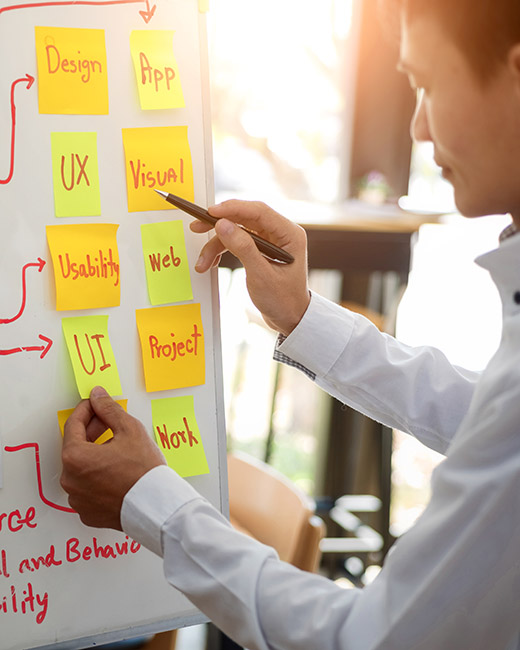 Design
App
UX
Visual
Usability
Web
UI
Project
Work
and Behavior